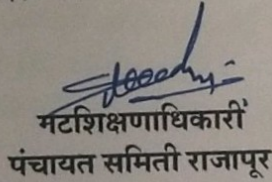 गटशिक्षणाधिकारी
पंचायत समिती राजापूर